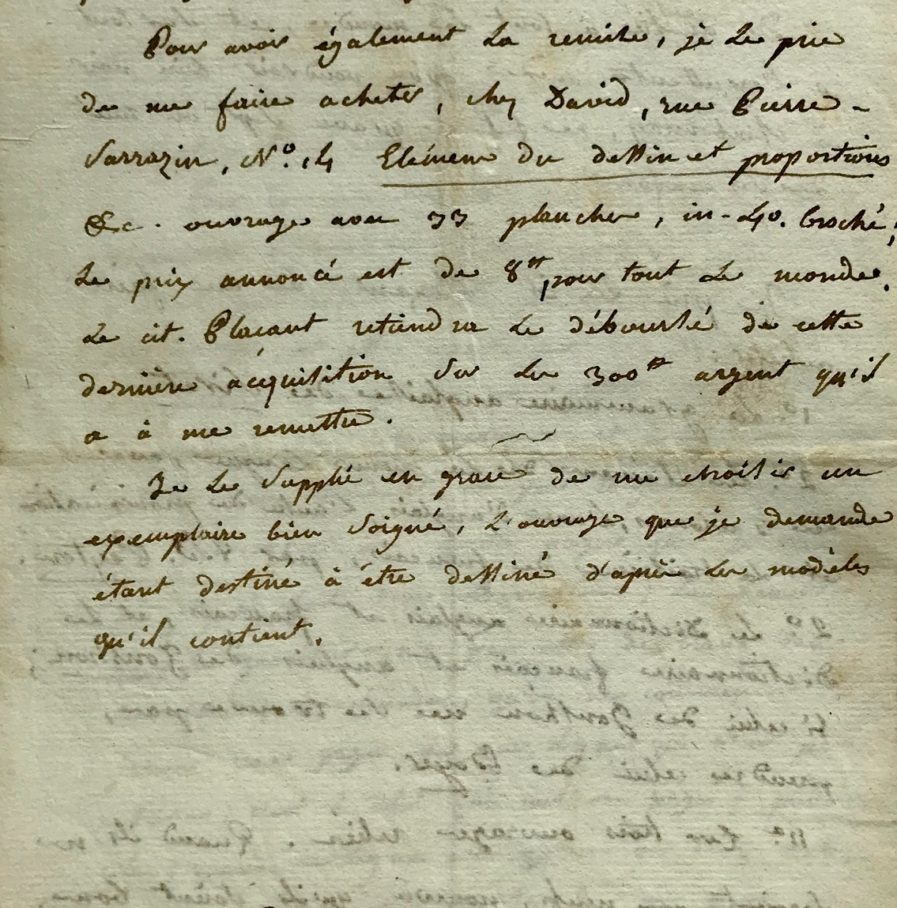 Pour avoir également la remise, je le prie
de me faire acheter, chez David, rue Pierre-
Sarrazin, N.º 14 Elémens du dessin et proportions
&c. ouvrage avec 33 planches, in-4º. broché,
le prix annoncé est de 8tt pour tout le monde.
Le cit. Plaçant retiendra le déboursé de cette
dernière acquisition sur les 300tt argent qu'il
a à me remettre.
Je le supplie en grace de me choisir un
exemplaire bien soigné, l'ouvrage que je demande
étant destiné à être dessiné d'après les modèles
qu'il contient.